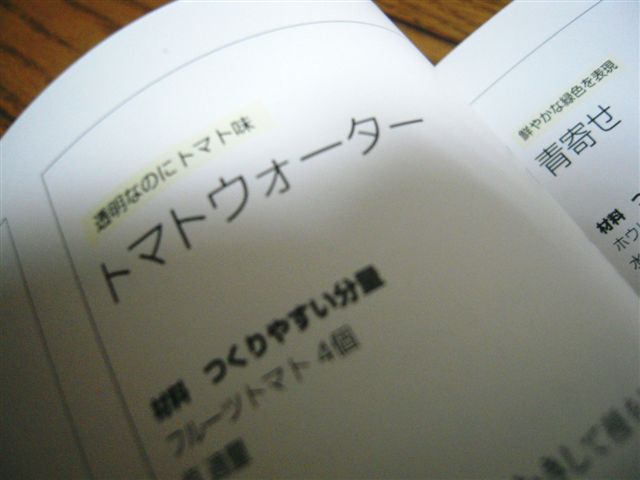 透明なのにトマト味
トマトウォーター
材料 つくりやすい分量
フルーツトマト 4個
適量
鮮やかな緑色を表現
青寄せ
材料 つ
ホウ
水